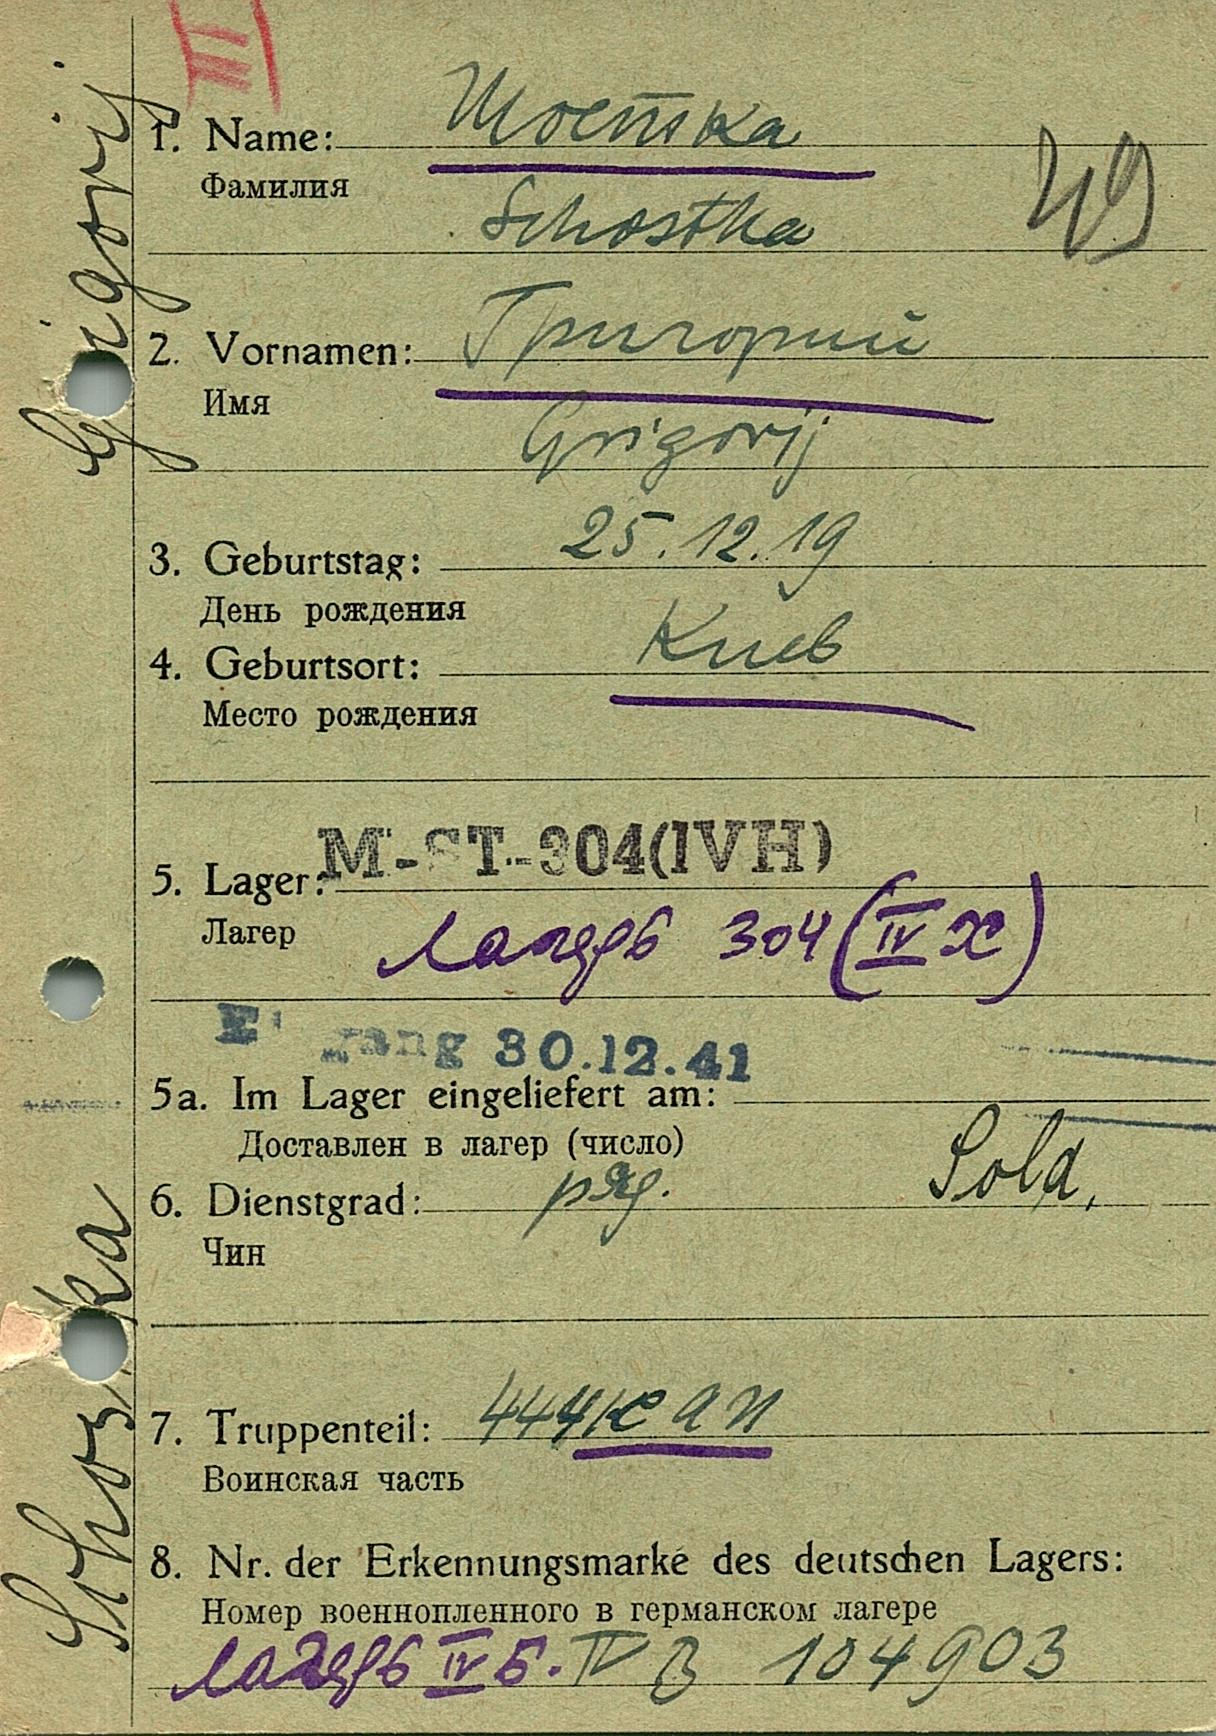 III
1. Name: Шостка
Фамилия
Schostka
49
2. Vornamen: Григорий
Имя
Grigorij
3. Geburtstag: 25.12.19
День рождения
4. Geburtsort: Киев
Место рождения
M-ST-304(IVH)
5. Lager:
Лагер лагерь 304 (IV Х)
30.12.41
5a. Im Lager eingeliefert am:
Доставлен в лагер (число)
6. Dienstgrad: ряд. Sold.
Чин
7. Truppenteil: 444 к а п
Воинская часть
8. Nr. der Erkennungsmarke des deutschen Lagers:
Номер военнопленного в германском лагере
лагерь IV Б. IV B 104903
Grigorij